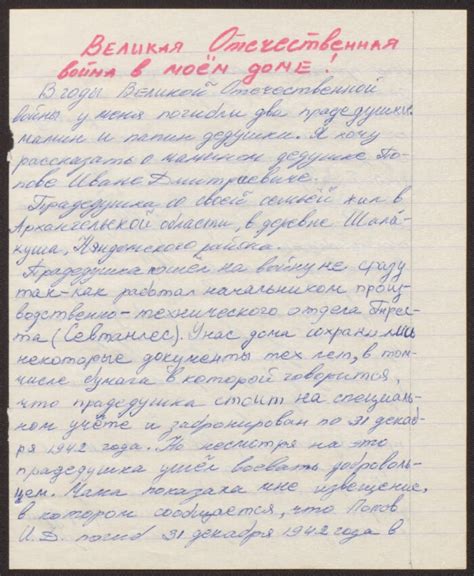 Великая Отечественная
война в моём доме!
В годы Великой Отечественной
войны у меня погибли два прадедушки:
мамин и папин дедушки. Я хочу
рассказать о мамином дедушке По-
пове Иване Дмитриевиче.
Прадедушка со своей семьёй жил в
Архангельской области, в деревне Шала-
куша, Няндомского района.
Прадедушка ушёл на войну не сразу
так-как работал начальником произ-
водственно-технического отдела Трес-
та (Севтанлес). У нас дома сохранились
некоторые документы тех лет, в том-
числе бумага в которой говорится,
что прадедушка стоит на специаль-
ном учёте и забронирован по 31 декаб-
ря 1942 года. Но несмотря на это
прадедушка ушёл воевать доброволь-
цем. Мама показала мне извещение,
в котором сообщается, что Попов
И.Д. погиб 31 декабря 1942 года в